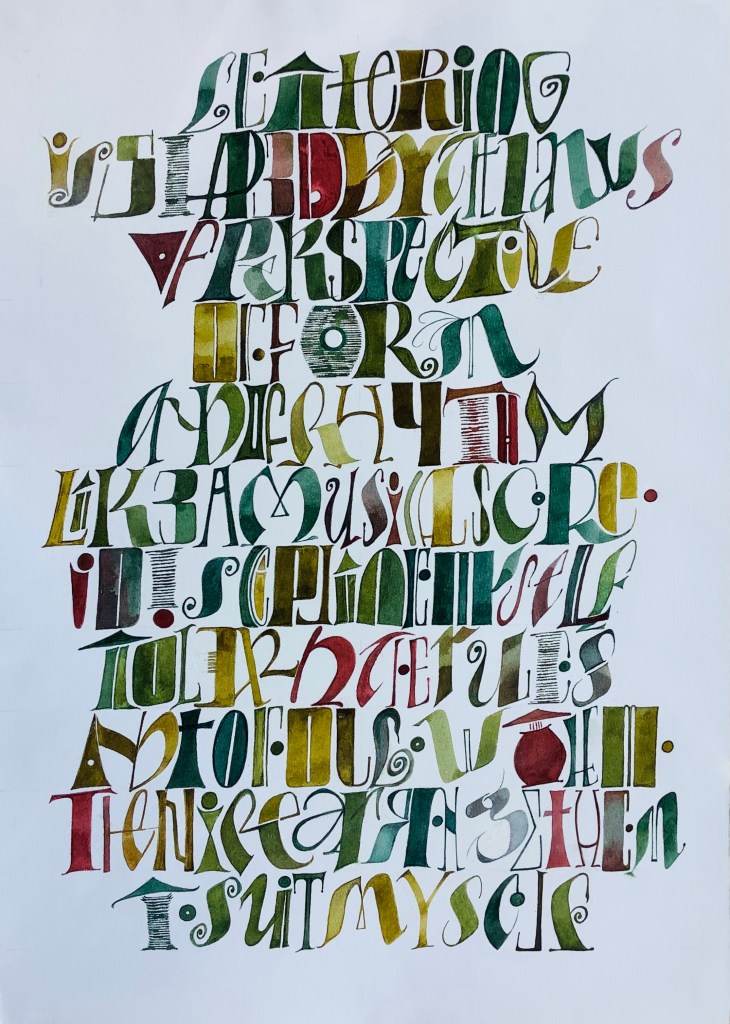 LETTERING
IS SHAPED BY THE LAWS
OF PERSPECTIVE
OF FORM
AND OF RHYTHM
LIKE A MUSICAL SCORE.
I DISCIPLINE MYSELF
TO LEARN THE RULES
AND TO FOLLOW THEM.
THEN I REARRANGE THEM
TO SUIT MYSELF